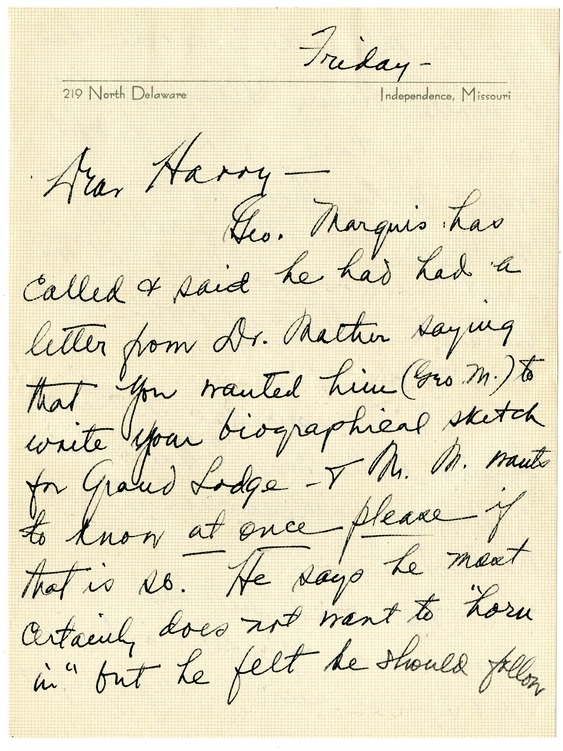 Friday-
219 North Delaware Independence, Missouri
Dear Harry—
Geo. Marquis has
called & said he had had a
letter from Dr. Mather saying
that you wanted him (Geo M.) to
write your biographical sketch
for Grand Lodge - & M. M. wants
to know at once please if
that is so. He says he most
certainly does not want to "horn
in" but he felt he should follow